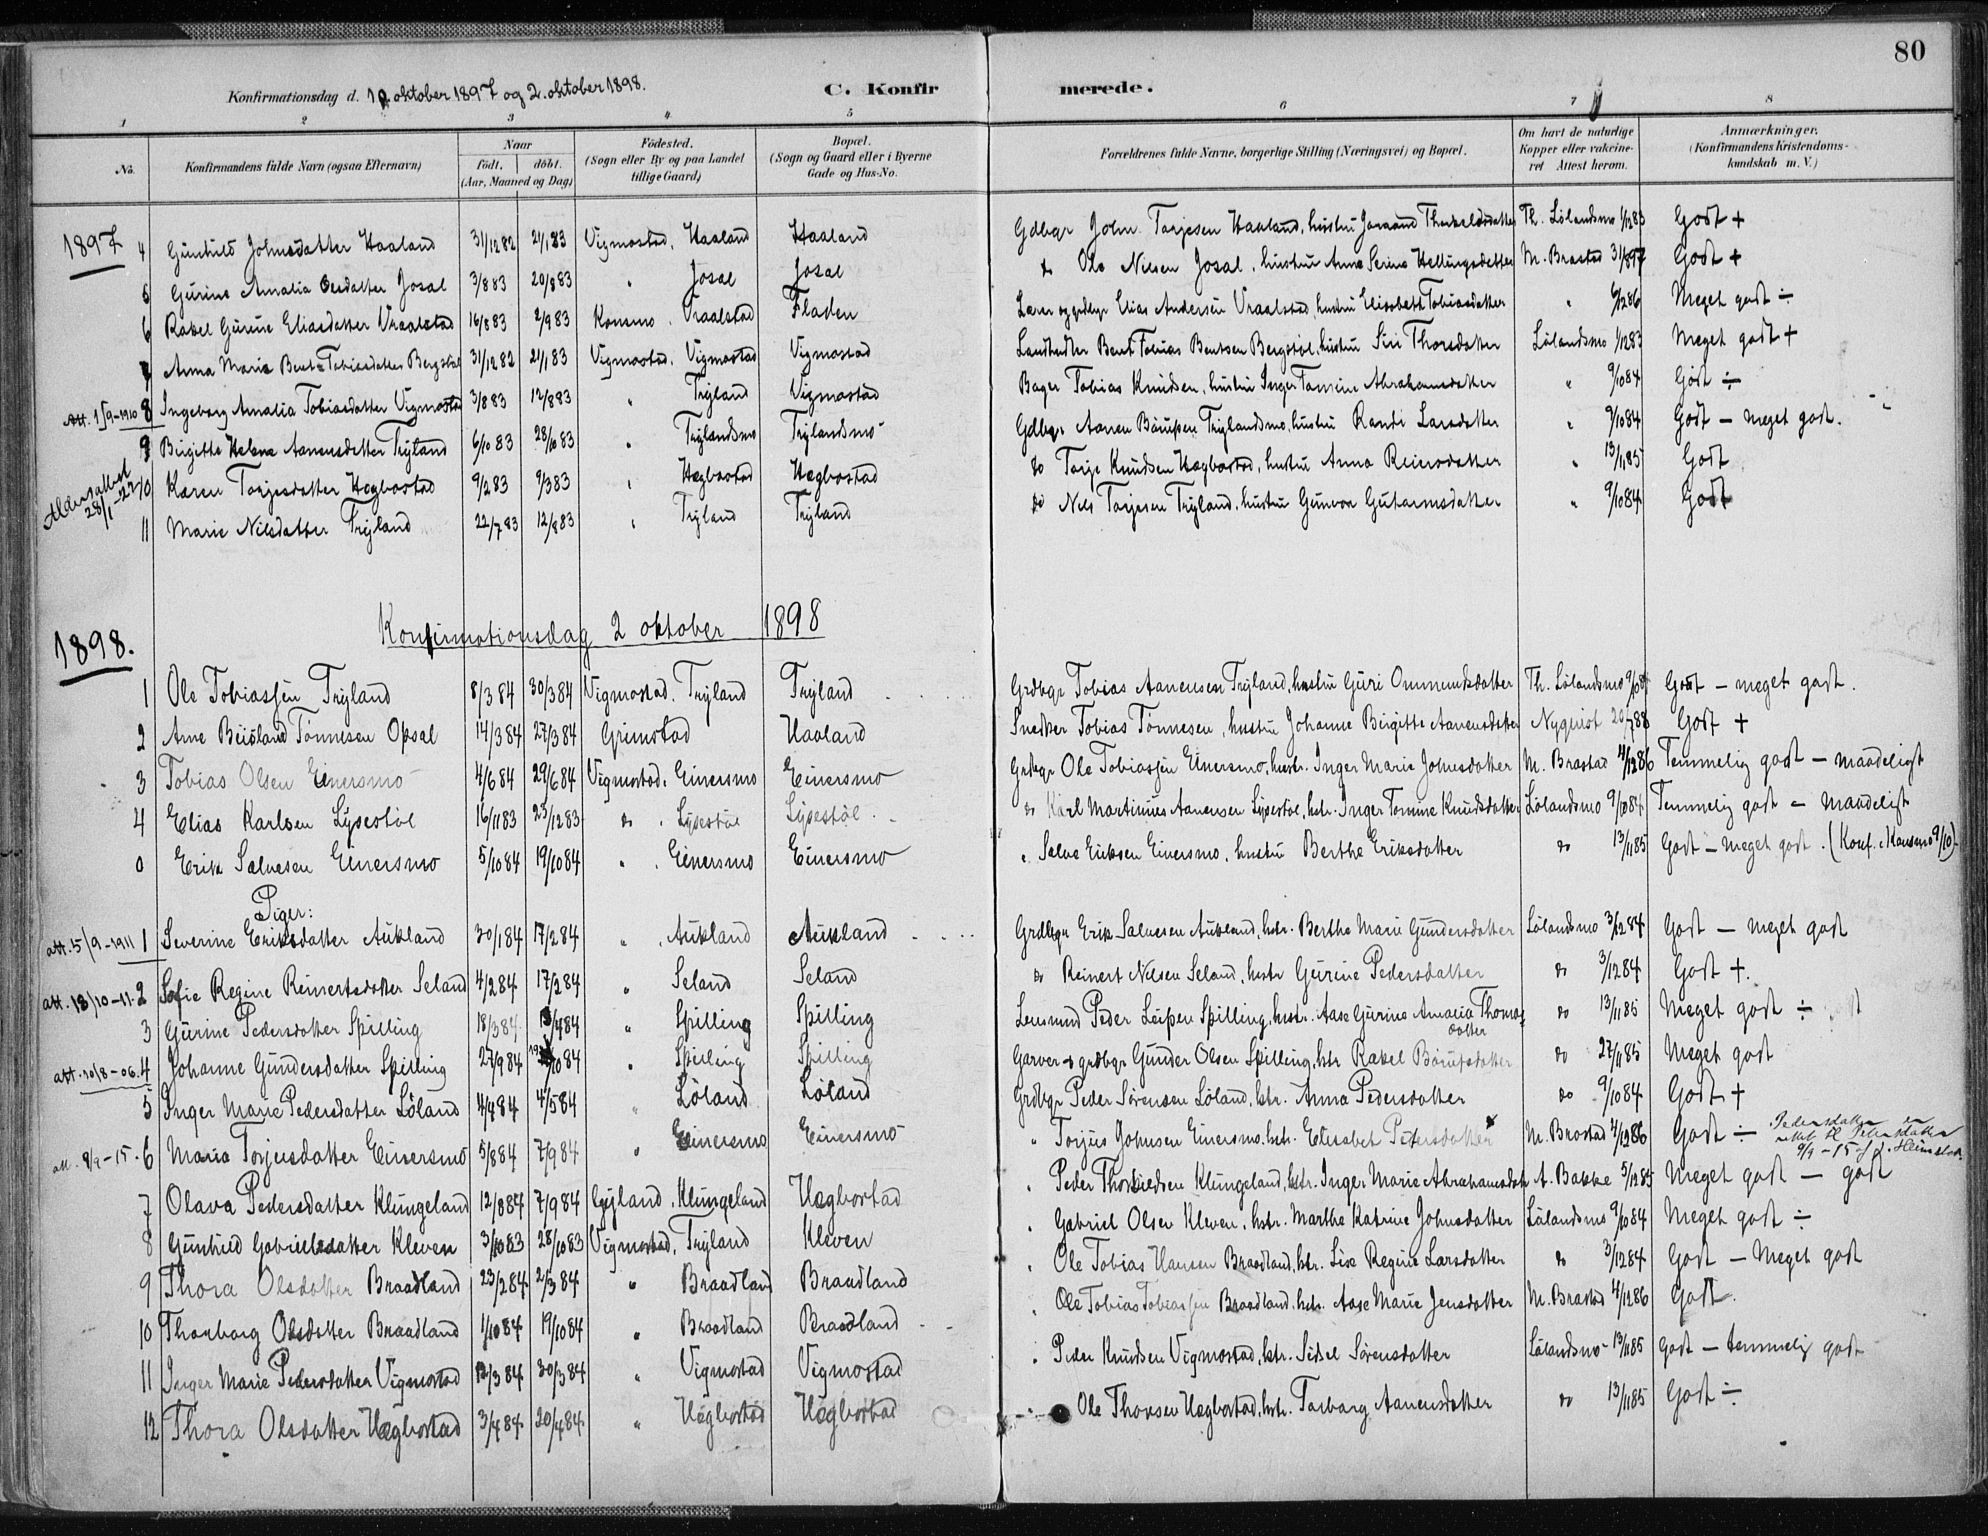 80
Konfirmationsdag d. 10. oktober 1897 og 2. oktober 1898.
C. Konfirmerede.
1 2 3 4 5 6 7 8
No. Konfirmandens fulde Navn (ogsaa Efternavn) Naar födt. döbt. (Aar, Maaned og Dag) Födested. (Sogn eller By og paa Landet tillige Gaard) Bopæl. (Sogn og Gaard eller i Byerne Gade og Hus-No. Forældrenes fulde Navne, borgerlige Stilling (Næringsvei) og Bopæl. Om havt de naturlige Kopper eller vakcineret Attest herom. Anmærkninger. (Konfirmandens Kristendomskundskab m. V.)
1897
4 Gunhild Johnsdatter Haaland 31/12 82 21/1 83 Vigmostad, Haaland Haaland Gdbgr John Tarjesen Haaland, hustru Therkelsdatter Th. Lölandsmo 1/12 83 Godt +
5 Gurine Amalia Josal 3/8 83 20/8 83 " Josal Josal do Ole Nilsen Josal, hustru Anne Serine Hellingsdatter M. Brastad 31/8 97 Godt +
6 Rakel Gurine Eliasdatter Vraalstad 16/8 83 2/9 83 Konsmo. Vraalstad Fladen Lærer og grdbgr Elias Andersen Vraalstad, hustru Elisabeth Tobiasdatter " 6/12 86 Meget godt ÷
7 Anna Maria Bent-Tobiasdatter Bergstøl 31/12 82 21/1 83 Vigmostad. Vigmostad Vigmostad Landhandler Bent Tobias Bentsen Bergstøl, hustru Siri Thorsdatter Lölandsmo 1/12 83 Meget godt +
Att. 1/9-1910 8 Ingeborg Amalia Tobiasdatter Vigmostad 3/8 83 12/8 83 " Tryland Vigmostad Bager Tobias Knudsen, hustru Inger Tomine Abrahamsdatter " 9/10 84 Godt ÷
9 Birgitte Helene Aanensdatter Tryland 6/10 83 28/10 83 " Trylandsmo Trylandsmo Gdbgr Aanen Trylandsmo, hustru Randi Larsdatter " 9/10 84 Godt – meget godt.
Aldersattest 28/1-22 10 Karen Torjesdatter Hægbostad 9/2 83 9/3 83 " Hægbostad Hægbostad do Torje Knudsen Hægbostad, hustru Anna Reiersdatter " 13/11 85 Godt
11 Marie Nilsdatter Tryland 22/7 83 12/8 83 " Tryland Tryland do Nils Torjesen Tryland, hustru Gunvor Gutormsdatter " 9/10 84 Godt
Konfirmationsdag 2 oktober 1898
1898.
1 Ole Tobiassen Tryland 8/3 84 30/3 84 Vigmostad. Tryland Tryland Grdbgr Tobias Aanensen Tryland, hustru Guri Ommundsdatter Th. Lölandsmo Godt – meget godt.
2 Arne Tönnesen Opsal 14/3 84 27/3 84 Grimstad Haaland Snedker Tobias Tönnesen, hustru Johanne Birgitte Aanensdatter Nyquist 20/7 88 Godt +
3 Tobias Olsen Einersmo 4/6 84 29/6 84 Vigmostad. Einersmo Einersmo Grdbgr Ole Tobiassen Einersmo, hustr. Inger Marie Johnsdatter M. Brastad 4/12 86 Temmelig godt – maadeligt
4 Elias Karlsen Lysestøl 16/11 83 23/12 83 do. Lysestøl Lysestøl do Karl Martinius Aanensen Lysestøl, hstr. Inger Tomine Knudsdatter Lölandsmo 9/10 84 Temmelig godt – maadeligt
0 Erik Salvesen Einersmo 5/10 84 19/10 84 ". Einersmo Einersmo " Salve Eriksen Einersmo, hustru Berthe Eriksdatter do 13/11 85 Godt – meget godt. (Konf. i Konsmo 9/10)
Piger:
att. 15/9-1911 1 Severine Eriksdatter Aukland 30/1 84 17/2 84 ". Aukland Aukland Grdbgr Erik Salvesen Aukland, hstr. Berthe Marie Gundersdatter Lölandsmo 3/12 84 Godt – meget godt
att. 18/10-11. 2 Sofie Regine Reinertsdatter Seland 4/2 84 17/2 84 " Seland Seland do Reinert Nilsen Seland, hstr Gurine Pedersdatter do 3/12 84 Godt +.
3 Gurine Pedersdatter Spilling 18/3 84 /4 84 " Spilling Spilling Lensmand Peder Spilling, hustr. Aase Gurine Amalia Thomasdatter do 13/11 85 Meget godt ÷
att. 20/8-06. 4 Johanne Gundersdatter Spilling 27/9 84 19/10 84 " Spilling Spilling Garver & grdbgr Gunder Olsen Spilling, hstr Rakel do 27/11 85 Meget godt
5 Inger Marie Pedersdatter Löland 4/4 84 4/5 84 " Löland Löland Grdbgr Peder Sörensen Löland, hstr. Anna Pedersdatter do 9/10 84 Godt +
att. 9/9-15. 6 Maria Torjusdatter Einersmo 5/8 84 7/9 84 " Einersmo Einersmo " Torjus Johnsen Einersmo, hstr. Elisabet Petersdatter M. Brastad 4/12 86 Godt ÷ 9/9-15
7 Olava Pedersdatter Klungeland 12/8 84 7/9 84 Lyland. Klungeland Hægbostad " Peder Klungeland, hstr. Inger Marie Abrahamsdatr A. Bakke 5/12 85 Meget godt – godt
8 Gunhild Gabrielsdatter Kleven 3/10 83 28/10 83 Vigmostad, Tryland Kleven " Gabriel Olsen Kleven, hstr. Marthe Katrine Johnsdatter Lölandsmo 9/10 84 Meget godt ÷
9 Thora Olsdatter Braadland 23/2 84 2/3 84 " Braadland Braadland " Ole Tobias Hansen Braadland, hstr. Lise Regine Larsdatter do 3/12 84 Godt – Meget godt
10 Thorborg Olsdatter Braadland 1/10 84 19/10 84 " Braadland Braadland " Ole Tobias Tobiassen Braadland, hstr. Aase Marie Jensdatter M. Brastad 4/12 86 Godt.
11 Inger Marie Pedersdatter Vigmostad 12/3 84 30/3 84 " Vigmostad Vigmostad " Peder Knudsen Vigmostad, hstr. Sidsel Sörensdatter Lölandsmo 13/11 85 godt – temmelig godt
12 Thora Olsdatter Hægbostad 3/4 84 20/4 84. " Hægbostad Hægbostad " Ole Thorsen Hægbostad, hstr. Tarborg Aanensdatter do 13/11 85 Godt ÷